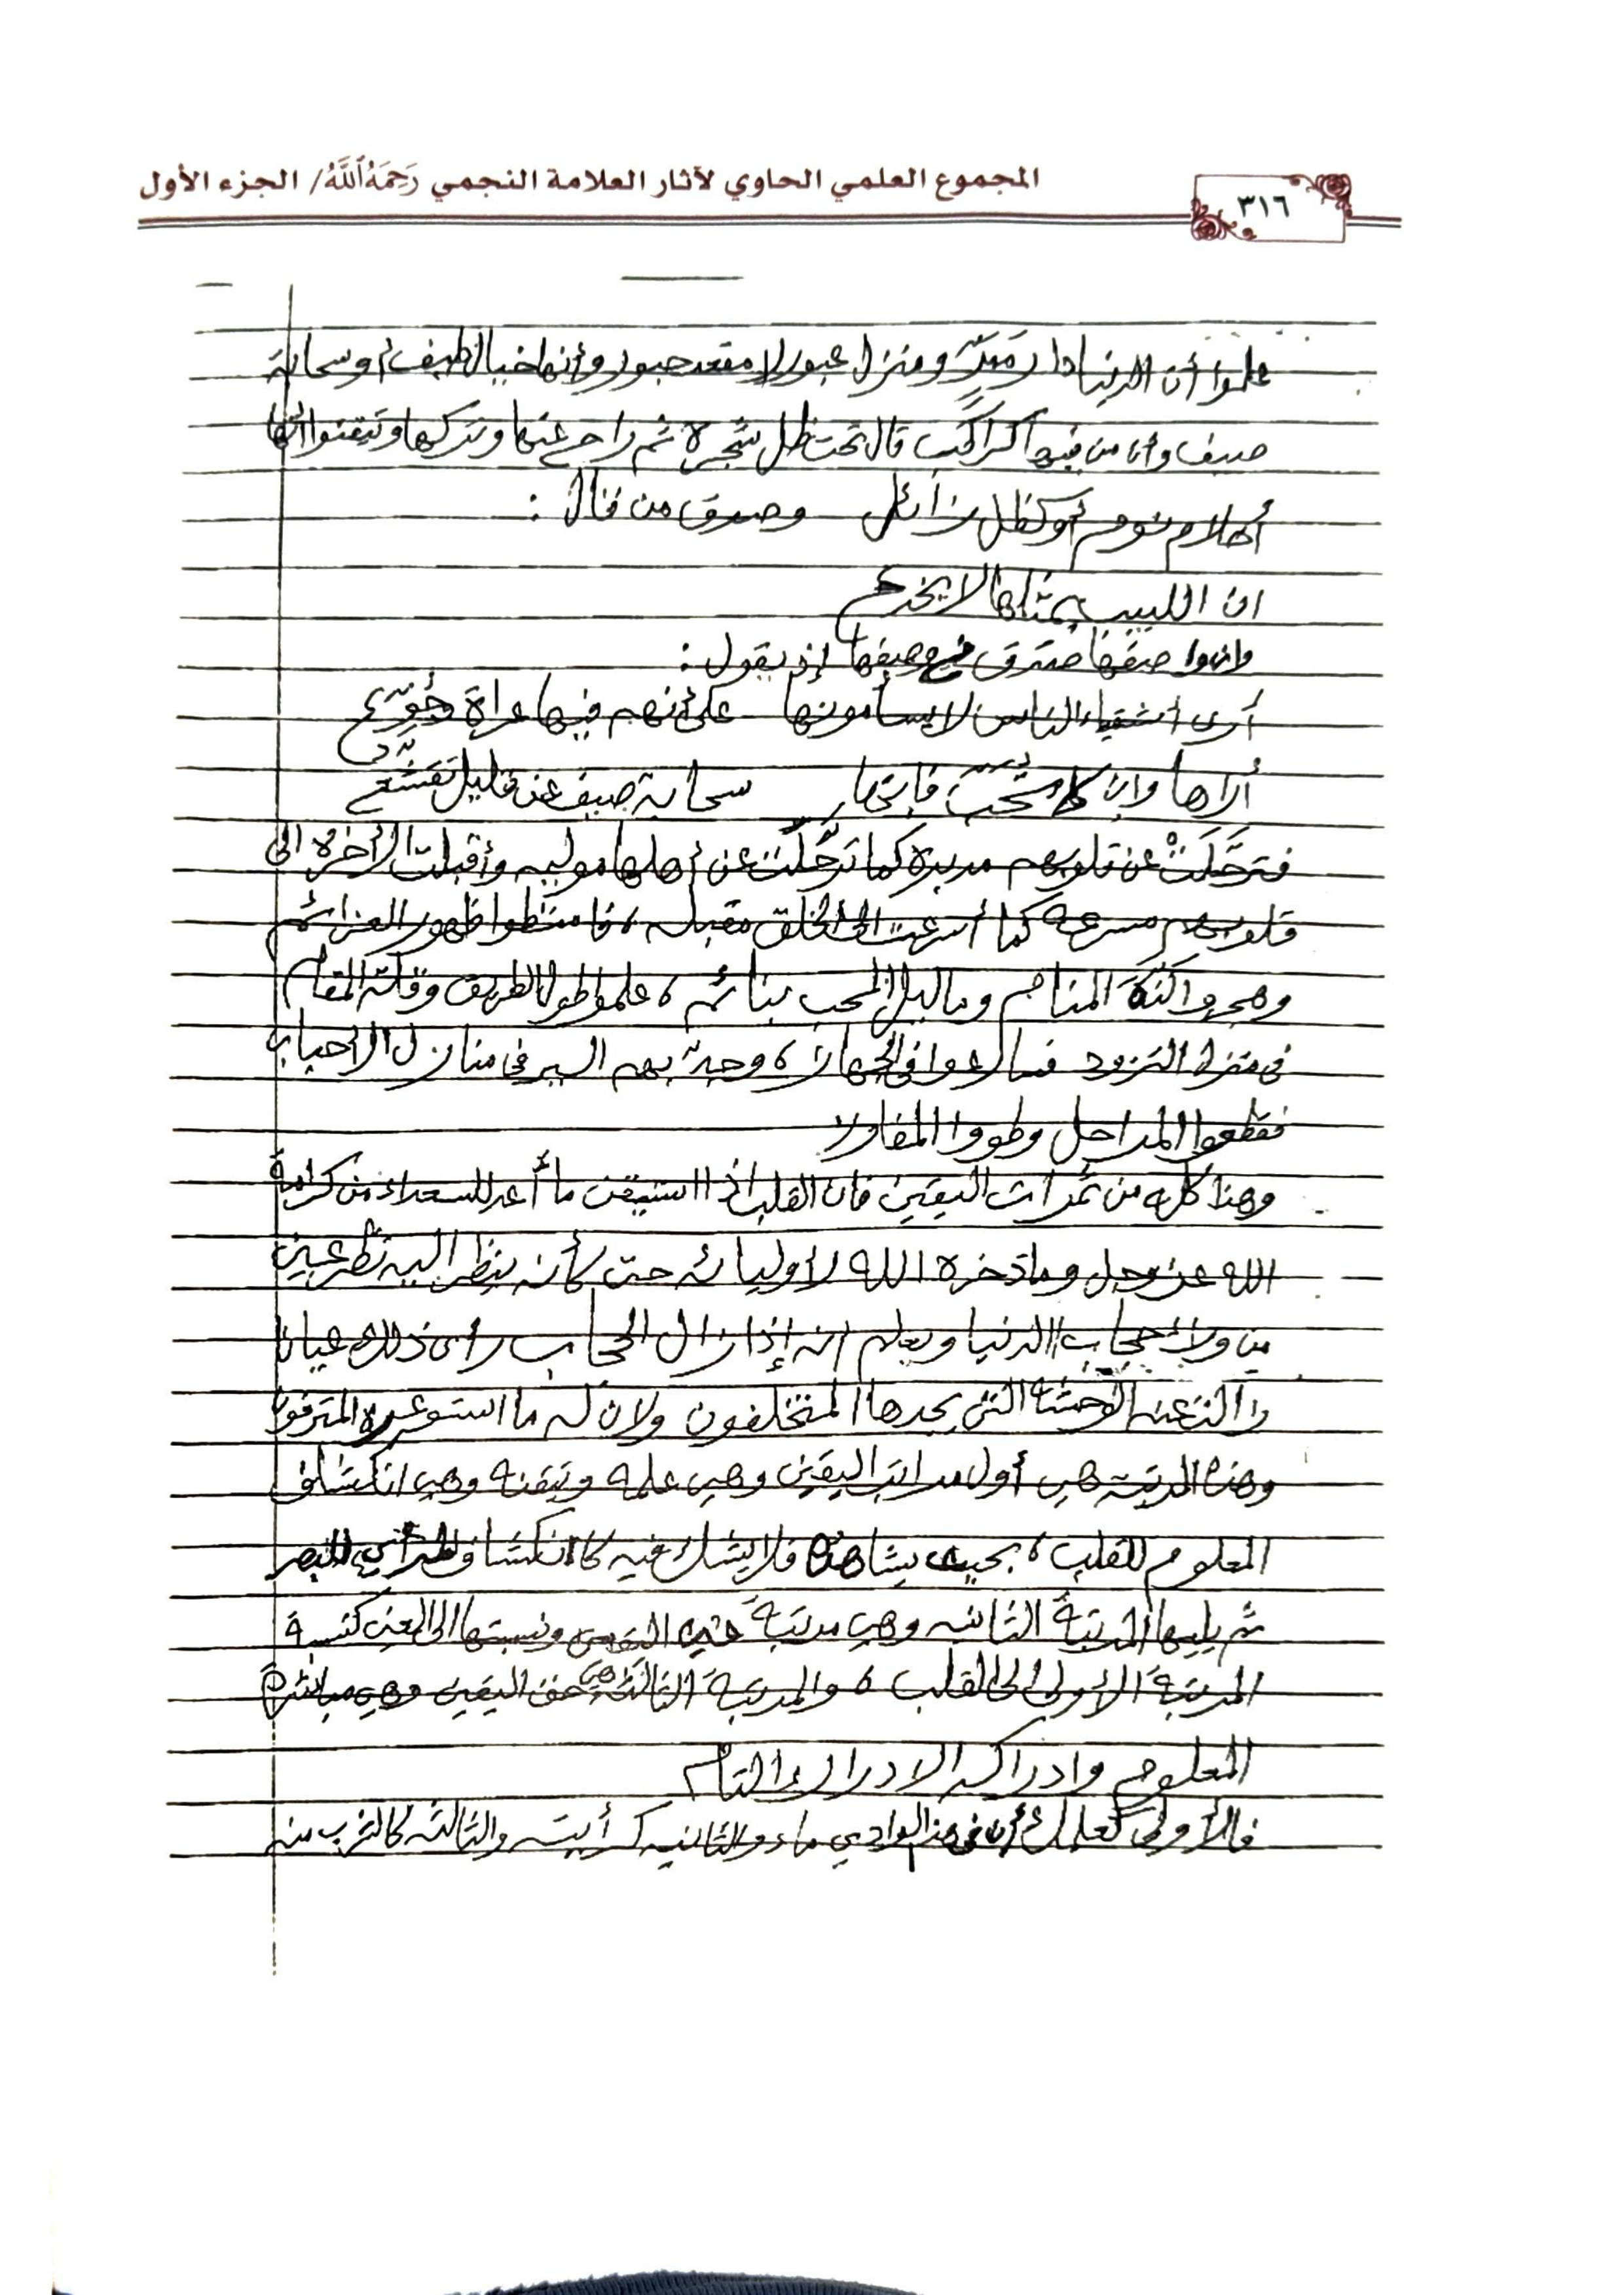 المجموع العلمي الحاوي لآثار العلامة النجمي رَحِمَهُ ٱللَّهُ/ الجزء الأول
٣١٦
علموا أن الدنيا دار ممرّ ومنزل عبور لا مقعد حبور وأنها خيال طيف أو سحابة
صيف وان من فيها كراكب قال تحت ظل شجرة ثم راح عنها وتركها وتيقنوا انها
أحلام نوم أو كظل زائل وصدق من قال :
ان اللبيب بمثلها لا يخدع
وان واصفها صدق في وصفها إذ يقول :
أرى اشقياء الناس لا يسأمونها على أنهم فيها عراة وجُوّع
أراها وان كانت تُحَبّ فانها سحابة صيف عن قليل تقشّع
فترحَّلَتْ عن قلوبهم مدبرة كما ترحَّلت عن أهلها موليه وأقبلت الأخرة الى
قلوبهم مسرعة كما أسرعت الى الخلق مقبله ، فامتطوا ظهور العزائم
وهجروا لذة المنام وما ليل المحب بنائم ، علموا طول الطريق وقلة المقام
في منزل التزود فسارعوا في الجهاز ، وجدّ بهم السير في منازل الأحباب
فقطعوا المراحل وطووا المفاوز
وهذا كله من ثمرات اليقين فان القلب اذا استيقن ما أعد للسعداء من كرامة
الله عز وجل وما ذخره الله لأوليائه حتى كأنه ينظر اليه نظر عين
من وراء حجاب الدنيا ويعلم انه إذا زال الحجاب رأى ذلك عيانا
زالت عنه الوحشة التي يجدها المتخلفون ولان له ما استوعره المترفون
وهذه المرتبه هي أول مراتب اليقين وهي علمه وتيقنه وهي انكشاف
المعلوم للقلب ، بحيث يشاهده فلا يشك فيه كانكشاف المرأي للبصر
ثم يليها المرتبة الثانيه وهي مرتبة عين اليقين ونسبتها الى العين كنسبة
المرتبة الأولى الى القلب ، والمرتبة الثالثة هي حق اليقين وهي مباشرة
المعلوم وادراكه الادراك التام
فالأولى كعلمك أن في هذا الوادي ماء والثانيه كرأيته والثالثه كالشرب منه